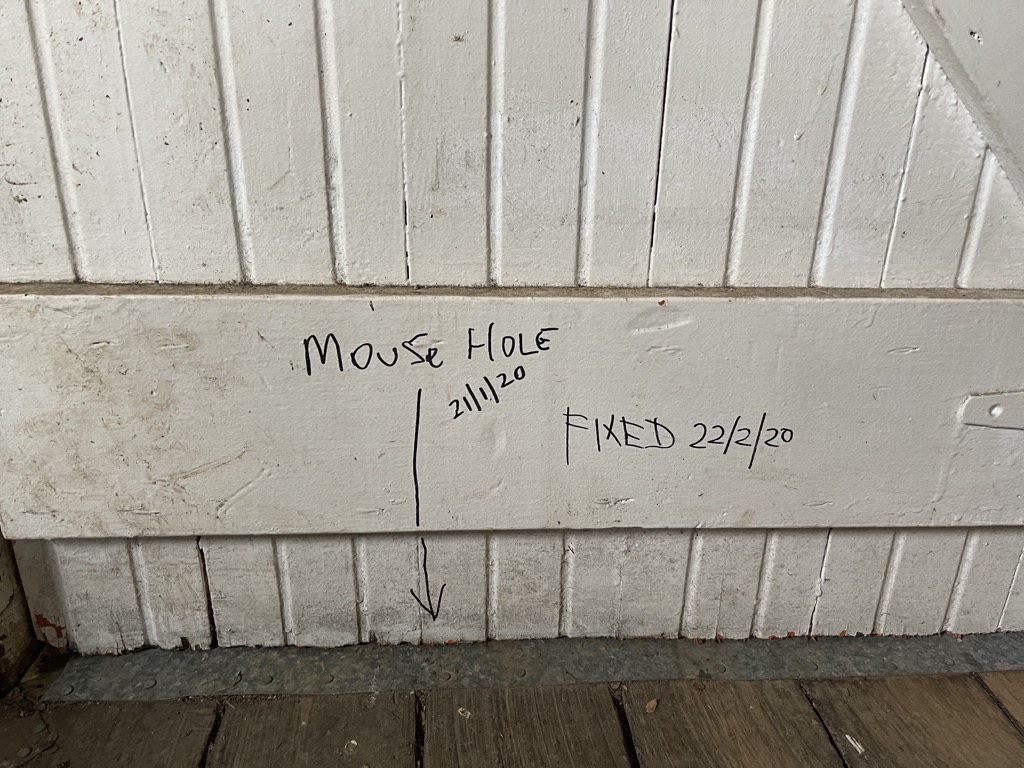 MOUSe HOLE
21/1/20
FIXED 22/2/20